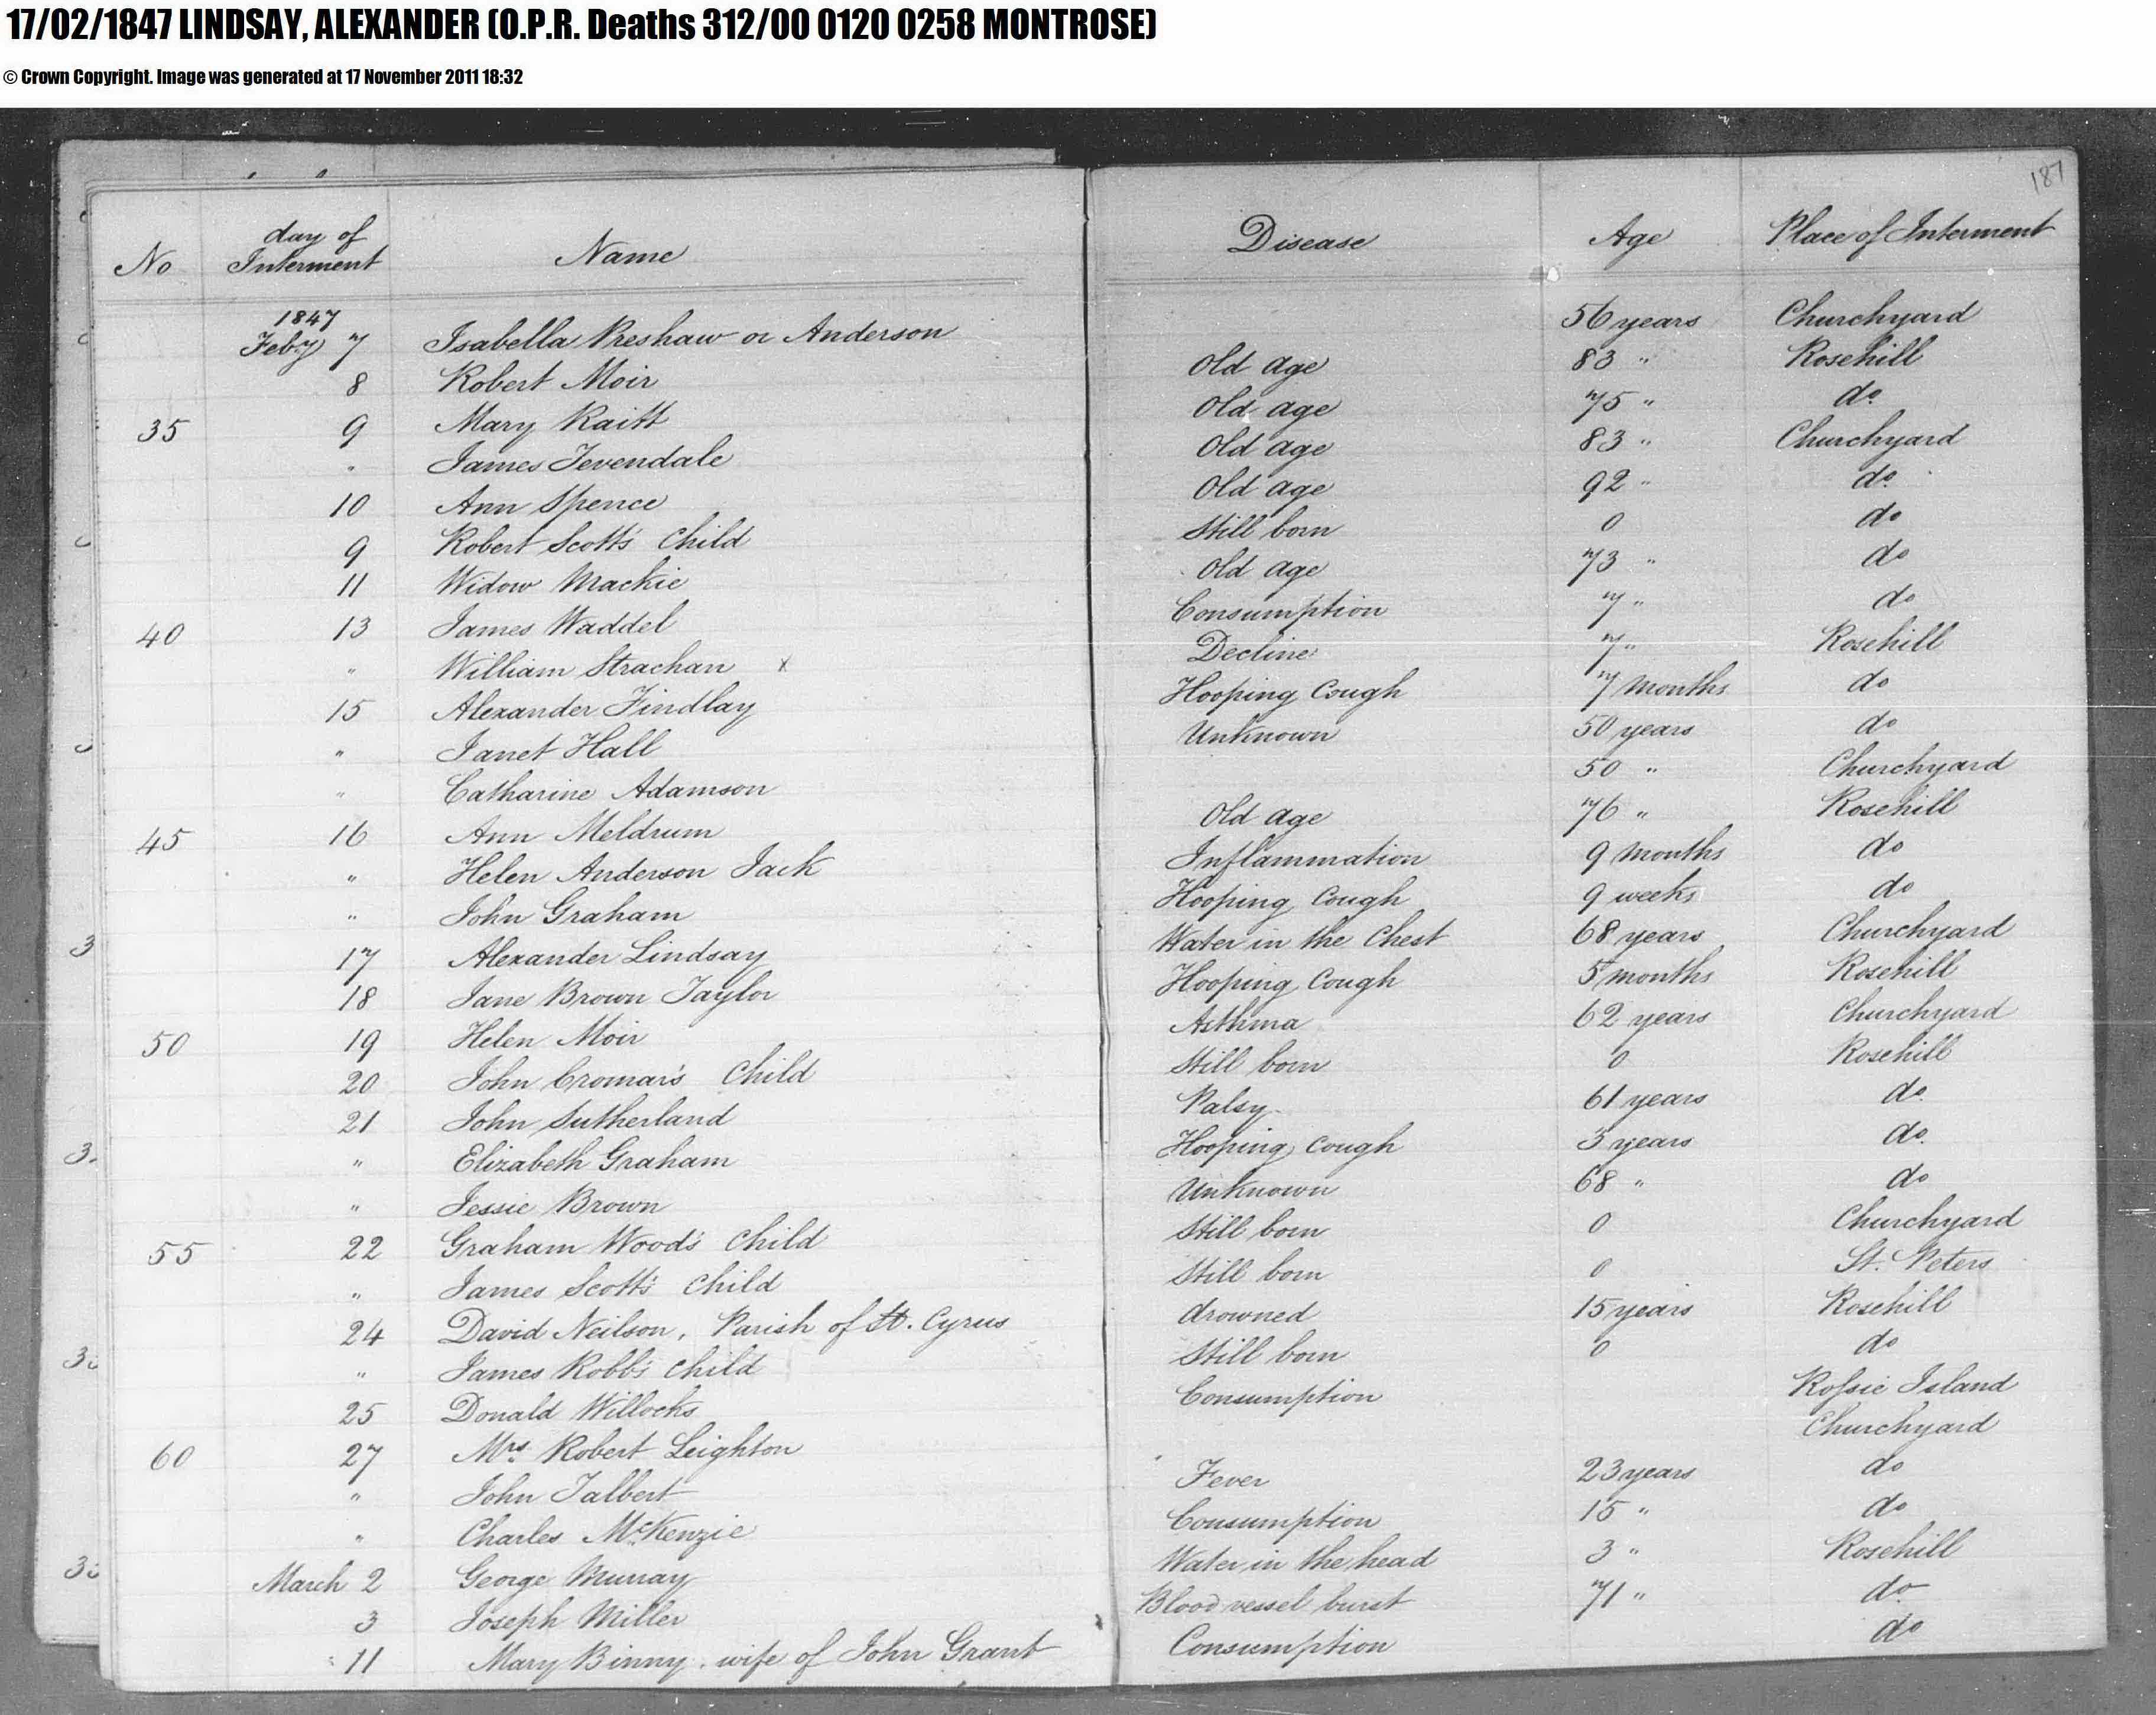 17/02/1847 LINDSAY, ALEXANDER (O.P.R. Deaths 312/00 0120 0258 MONTROSE)
© Crown Copyright. Image was generated at 17 November 2011 18:32
187
No day of Interment Name Disease Age Place of Interment
1847
Feby 7 Isabella Preshaw or Anderson 56 years Churchyard
8 Robert Moir Old age 83 " Rosehill
35 9 Mary Raitt Old age 75 " do
" James Tevendale Old age 83 " Churchyard
10 Ann Spence Old age 92 " do
9 Robert Scott's Child Still born 0 do
11 Widow Mackie Old age 73 " do
40 13 James Waddel Consumption 7 " do
" William Strachan x Decline 7 " Rosehill
15 Alexander Findlay Hooping Cough 7 months do
" Janet Hall Unknown 50 years do
" Catharine Adamson 50 " Churchyard
45 16 Ann Meldrum Old age 76 " Rosehill
" Helen Anderson Jack Inflammation 9 months do
" John Graham Hooping Cough 9 weeks do
17 Alexander Lindsay Water in the Chest 68 years Churchyard
18 Jane Brown Taylor Hooping Cough 5 months Rosehill
50 19 Helen Moir Asthma 62 years Churchyard
20 John Cromar's Child Still born 0 Rosehill
21 John Sutherland Palsy 61 years do
" Elizabeth Graham Hooping Cough 3 years do
" Jessie Brown Unknown 68 " do
55 22 Graham Wood's Child Still born 0 Churchyard
" James Scott's Child Still born 0 St. Peters
24 David Neilson, Parish of St. Cyrus drowned 15 years Rosehill
" James Robb's Child Still born 0 do
25 Donald Willocks Consumption Rossie Island
60 27 Mrs Robert Leighton Churchyard
" John Talbert Fever 23 years do
" Charles McKenzie Consumption 15 " do
March 2 George Murray Water in the head 3 " Rosehill
3 Joseph Miller Blood vessel burst 71 " do
11 Mary Binny, wife of John Grant Consumption do